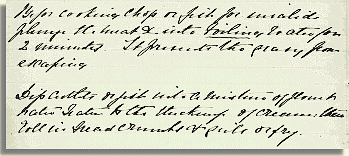 Before cooking Chop or fish for invalid
plunge the meat into boiling water for
2 minutes. It prevents the gravy from
escaping
Dip cutlets or fish into a mixture of flour &
water to the thickness of cream, then
roll in bread crumbs & grill or fry.